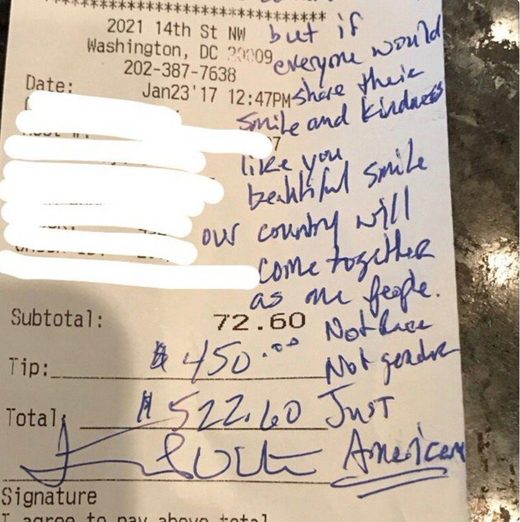 2021 14th St NW
Washington, DC 20009
202-387-7638
Date: Jan23'17 12:47PM
but if
everyone would
share their
smile and kindness
like you
beautiful smile
our country will
come together
as one people.
Not Race
Not gender
Just
American
7
Subtotal: 72.60
Tip: $450.00
Total: $522.60
Signature
I agree to pay above total